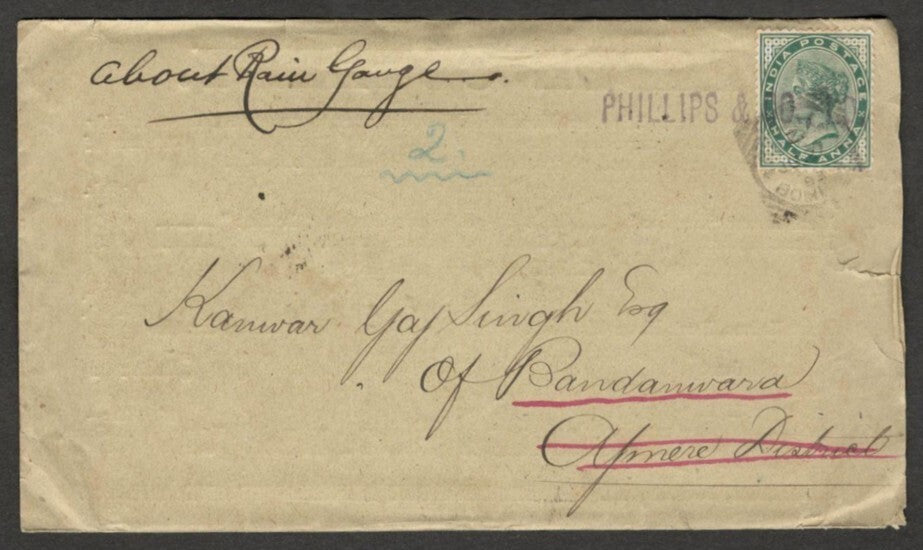 about Rain Gauge
PHILLIPS &
INDIA POSTAGE
HALF ANNA
2
Kanwar Gaj Singh Esq
Of Bandanwara
Ajmere District